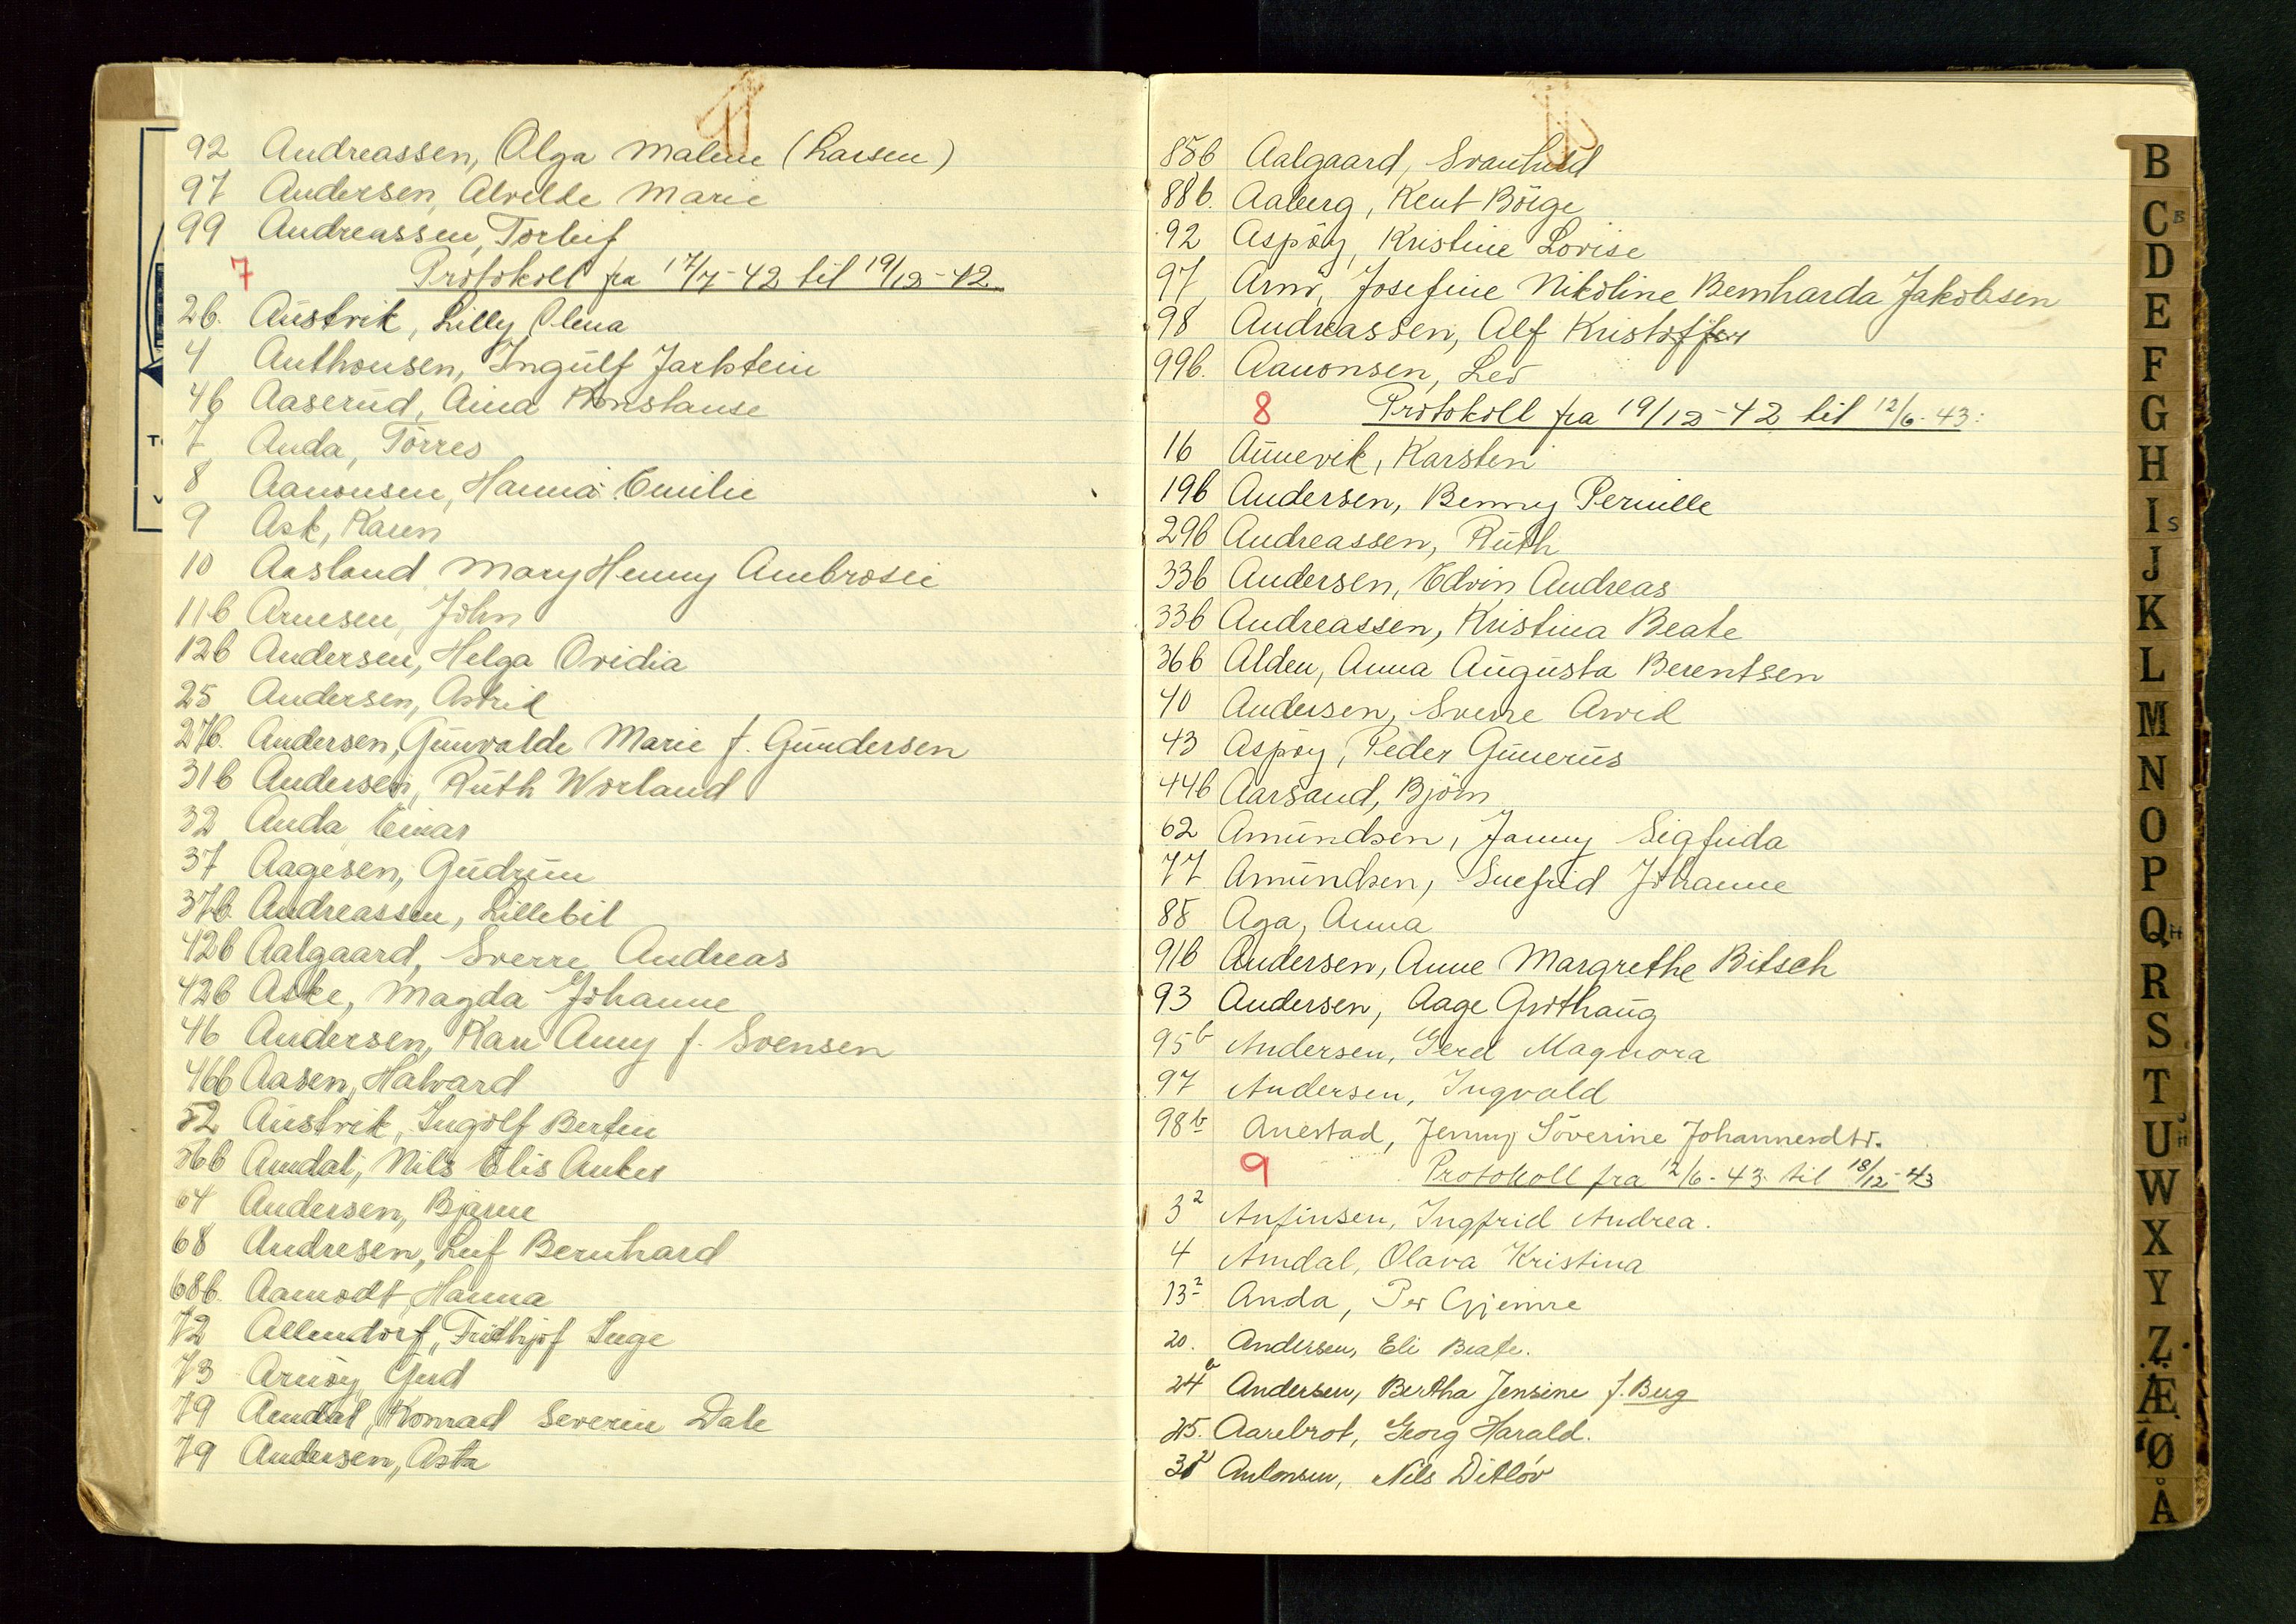 92 Andreassen, Olga Malene (Larsen)
97 Andersen, Alvilde Marie
99 Andreassen, Torleif
7 Protokoll fra 17/7-42 til 19/12-42
2b. Austvik, Lilly Olena
4 Anthonsen, Ingulf Jarlstein
4b Aaserud, Aina Konstanse
7 Anda, Torres
8 Aanonsen, Hanna Emilie
9 Ask, Karen
10 Aasland Mary Henny Ambrosie
11b Arnesen, John
12b Andersen, Helga Ovidia
25 Andersen, Astrid
27b. Andersen, Gunvalde Marie f. Gundersen
31b Andersen, Ruth Worland
32 Anda Einar
37 Aagesen, Gudrun
37b. Andreassen, Lillebil
42b Aalgaard, Sverre Andreas
42b Aske, Magda Johanne
46 Andersen, Kari Anny f. Svensen
46b Aasen, Halvard
52 Austvik, Ingolf Bertin
56b Amdal, Nils Elis Anker
64 Andersen, Bjarne
68 Andresen, Leif Bernhard
68b. Aamodt, Hanna
72 Allendorf, Frithjof Inge
73 Arnøy Gud
79 Amdal, Konrad Severin Dale
79 Andersen, Asta
B
C
B
D
E
F
G
H
I
S
J
K
L
M
N
O
P
Q
H
R
S
T
U
J
H
W
X
Y
Z
Æ
Ø
Å
85b Aalgaard, Svanhild
88b. Aaberg, Kent Börge
92 Aspöy, Kristine Lovise
97 Arnö, Josefine Nikoline Bernharda Jakobsen
98 Andreassen, Alf Kristoffer
99b. Aanonsen, Leo
8 Protokoll fra 19/12-42 til 12/6-43:
16 Aunevik, Karsten
19b Andersen, Benny Pernille
29b Andreassen, Ruth
33b Andersen, Edvin Andreas
33b Andreassen, Kristina Beate
36b Alden, Anna Augusta Berentsen
40 Andersen, Sverre Arvid
43 Aspöy, Peder Gunerius
44b Aarsand, Björn
62 Amundsen, Janny Sigfrida
77 Amundsen, Snefrid Johanne
88 Aga, Anna
91b Andersen, Anne Margrethe Bitsch
93 Andersen, Aage Grothaug
95b Andersen, Gerd Magnora
97 Andersen, Ingvald
98b Anestad, Jenny Söverine Johannesdtr.
9 Protokoll fra 12/6-43 til 18/12-43
3² Anfinsen, Ingfrid Andrea.
4 Amdal, Olava Kristina
13² Anda, Per Gjemre
20. Andersen, Eli Beate.
24b Andersen, Bertha Jensine f. Berg
25. Aarebrot, Georg Harald.
Antonsen, Nils Ditlöv